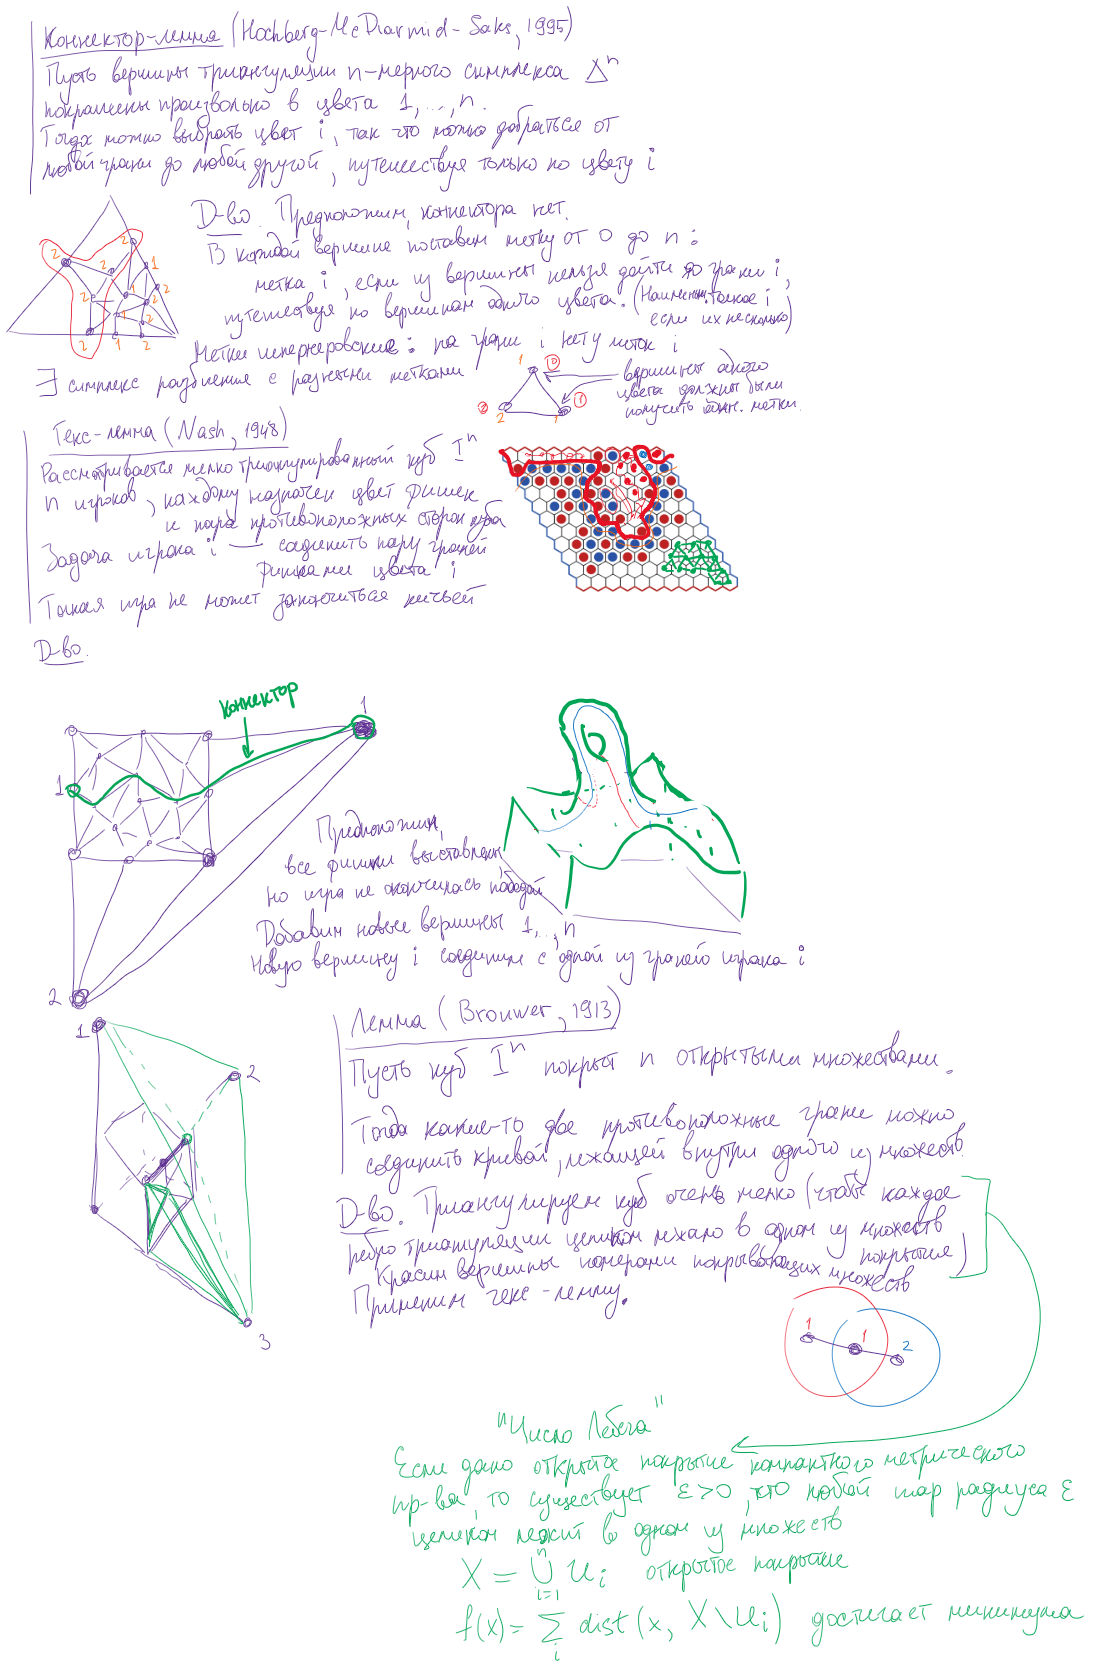 Коннектор-лемма (Hochberg-McDiarmid-Saks, 1995)
Пусть вершины триангуляции n-мерного симплекса Δⁿ
покрашены произвольно в цвета 1, ..., n.
Тогда можно выбрать цвет i, так что можно добраться от
любой грани до любой другой, путешествуя только по цвету i
Д-во. Предположим, коннектора нет.
В каждой вершине поставим метку от 0 до n:
метка i, если из вершины нельзя дойти до грани i,
путешествуя по вершинам одного цвета. (Наименьшее такое i
если их несколько)
Метки шпернеровские: на грани i нету меток i
∃ симплекс разбиения с разными метками
вершины одного
цвета должны были
получить один. метки.
2
2
2
1
2
2
1
2
1
2
2
1
2
1
0
2
2
1
1
Гекс-лемма (Nash, 1948)
Рассматривается мелко триангулированный куб Iⁿ
n игроков, каждому назначен цвет фишек
и пара противоположных сторон куба
Задача игрока i — соединить пару граней
фишками цвета i
Такая игра не может закончиться ничьей
Д-во.
коннектор
1
1
2
Предположим,
все фишки выставлены,
но игра не окончилась победой
Добавим новые вершины 1, ..., n
Новую вершину i соединим с одной из граней игрока i
1
2
3
Лемма (Brouwer, 1913)
Пусть куб Iⁿ покрыт n открытыми множествами.
Тогда какие-то две противоположные грани можно
соединить кривой, лежащей внутри одного из множеств
Д-во. Триангулируем куб очень мелко (чтобы каждое
ребро триангуляции целиком лежало в одном из множеств
покрытия)
Красим вершины номерами покрывающих множеств
Применим гекс-лемму.
1
1
2
"Число Лебега"
Если дано открытое покрытие компактного метрического
пр-ва, то существует ε>0, что любой шар радиуса ε
целиком лежит в одном из множеств
X = ⋃ᵢ₌₁ⁿ Uᵢ открытое покрытие
f(x) = ∑ᵢ dist(x, X∖Uᵢ) достигает минимума